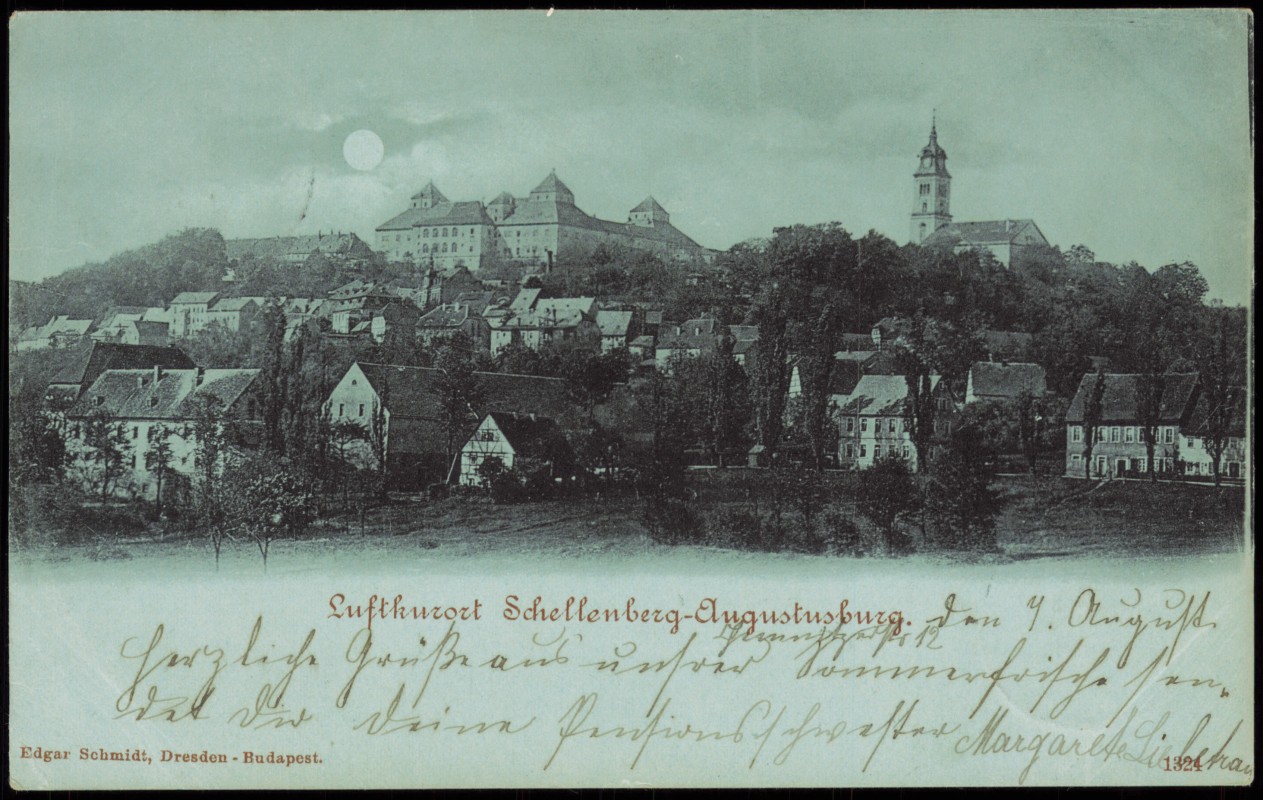 Luftkurort Schellenberg-Augustusburg.
den 7. August.
Herzliche Grüße aus unsrer Sommerfrische sen-
det Dir deine Pensionsschwester Margarete
Edgar Schmidt, Dresden - Budapest.
1324